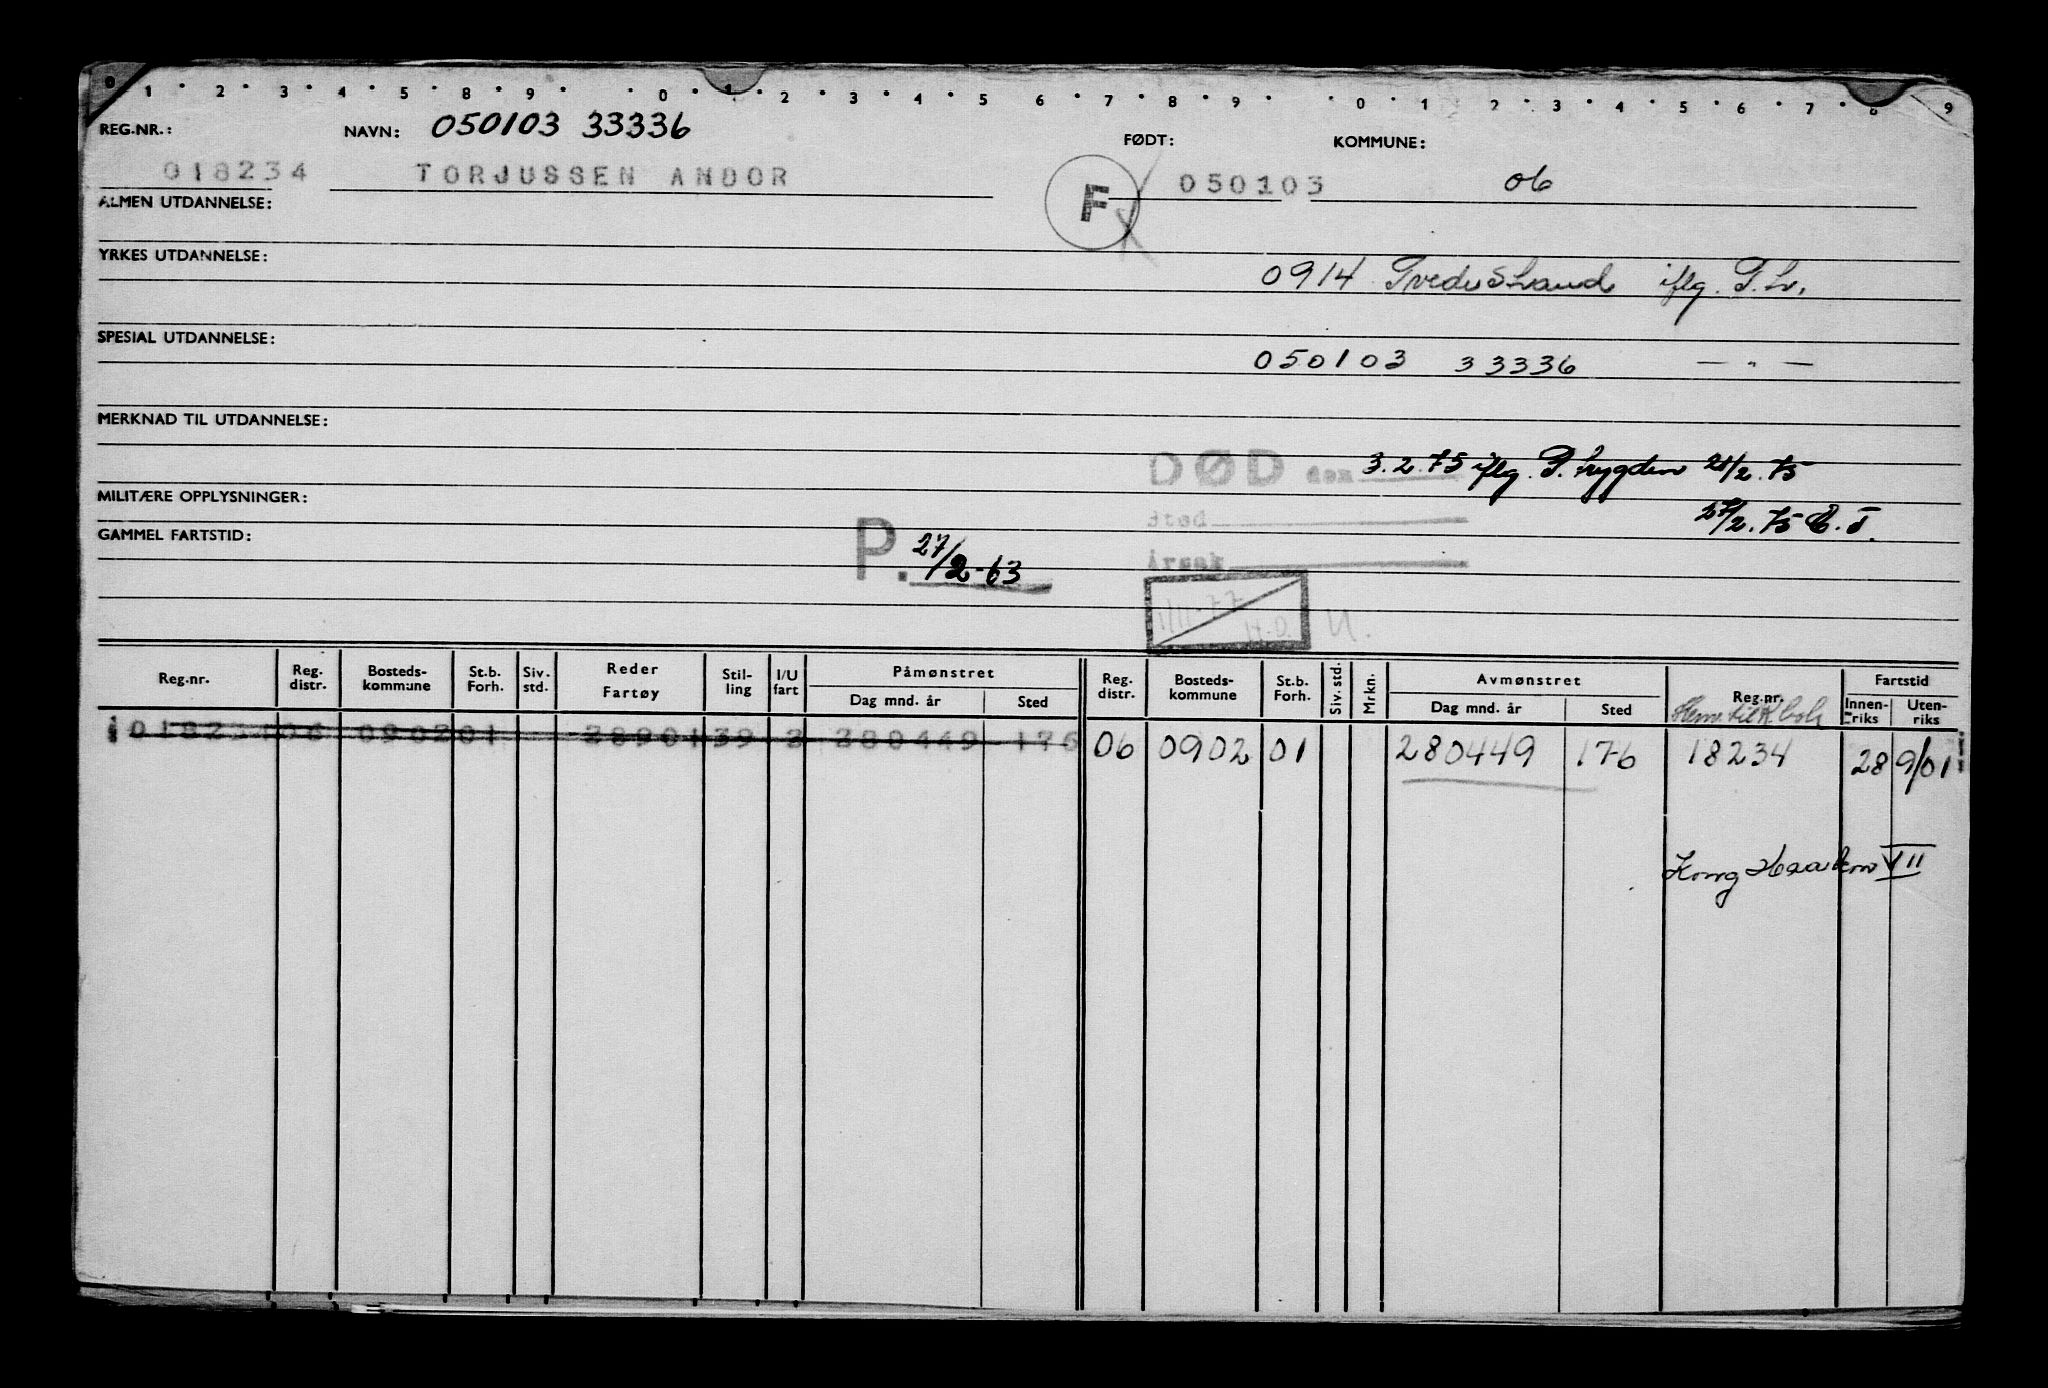 0 1 2 3 4 5 8 9 0 1 2 3 4 5 6 7 8 9 0 1 2 3 4 5 6 7 8 9
REG.NR.: NAVN: 050103 33336 FØDT: KOMMUNE:
018234 TORJUSSEN ANDOR F 050103 06
ALMEN UTDANNELSE:
YRKES UTDANNELSE:
0914 Tvedestrand iflg. T.L.
SPESIAL UTDANNELSE:
050103 33336 — " —
MERKNAD TIL UTDANNELSE:
DØD den 3.2.75 iflg. P. trygden 21/2.75
MILITÆRE OPPLYSNINGER:
Sted 27/2.75
GAMMEL FARTSTID:
P. 27/2-63
Årsak
1/11-77
H.O. U.
Reg.nr. Reg. distr. Bosteds-kommune St.b. Forh. Siv. std. Reder Fartøy Stil-ling I/U fart Påmønstret Dag mnd. år Sted Reg. distr. Bosteds-kommune St.b. Forh. Siv. std. Mrkn. Avmønstret Dag mnd. år Sted Reg.nr. Fartstid Innen-riks Uten-riks
018234 06 0902 01 28901 39 3 280449 176 06 0902 01 280449 176 18234 28 9/01
Kong Haakon VII